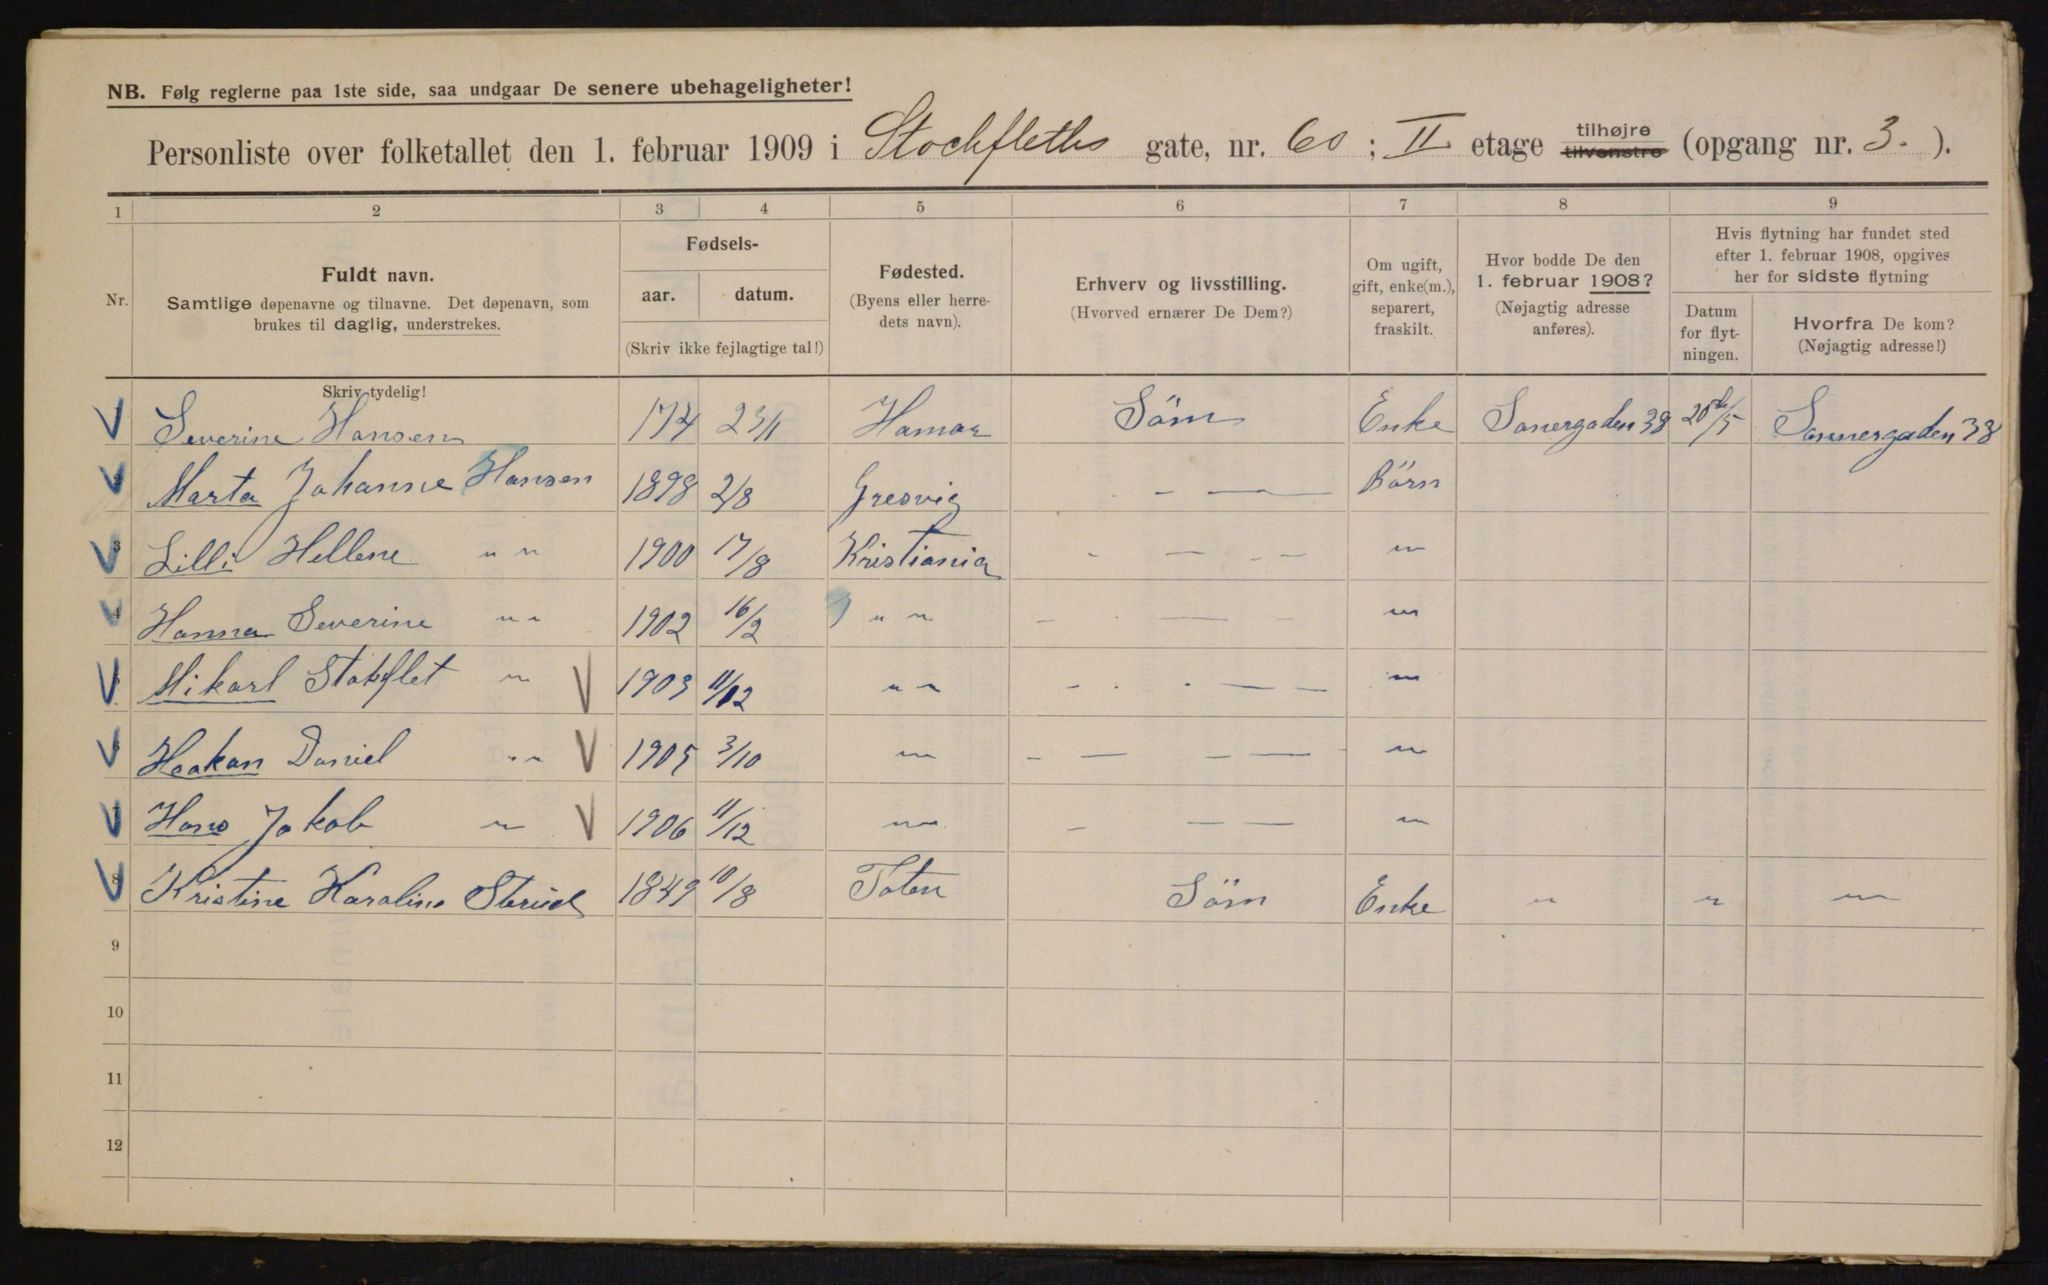 NB. Følg reglerne paa 1ste side, saa undgaar De senere ubehageligheter!
Personliste over folketallet den 1. februar 1909 i Stockfleths gate, nr. 60 ; II etage tilhøjre tilvenstre (opgang nr. 3. ).
1 2 3 4 5 6 7 8 9
Nr.
Fuldt navn.
Samtlige døpenavne og tilnavne. Det døpenavn, som
brukes til daglig, understrekes.
Skriv tydelig!
Fødsels-
aar. datum.
(Skriv ikke fejlagtige tal!)
Fødested.
(Byens eller herre-
dets navn).
Erhverv og livsstilling.
(Hvorved ernærer De Dem?)
Om ugift,
gift, enke(m.),
separert,
fraskilt.
Hvor bodde De den
1. februar 1908?
(Nøjagtig adresse
anføres).
Hvis flytning har fundet sted
efter 1. februar 1908, opgives
her for sidste flytning
Datum
for flyt-
ningen.
Hvorfra De kom?
(Nøjagtig adresse!)
Severine Hansen 174 23/1 Hamar Söm Enke Sanergaden 38 Sannergaden 38
2 Marta Johanne Hansen 1898 2/8 Gresvig - — Börn
3 Lilli Hellene " " 1900 17/8 Kristiania - — - — "
4 Hanna Severine " " 1902 16/2 " " - - — - "
Mikarl Stokflet " V 1903 11/12 " " - - - — — "
Haakan Daniel " V 1905 3/10 " - — - — "
Hans Jakob " V 1906 11/12 " - — — "
8 Kristine Karoline 1849 10/8 Toten Söm Enke " " "
9
10
11
12